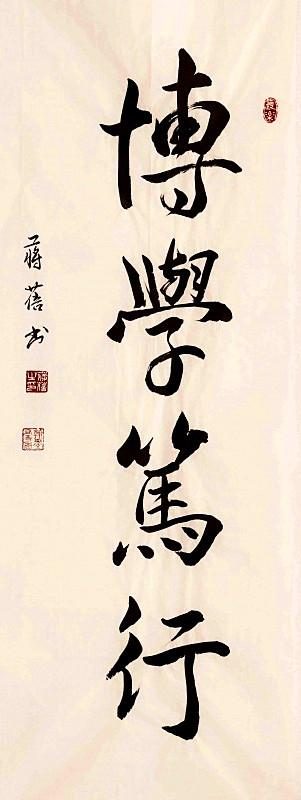 博學篤行
蔣蓓书